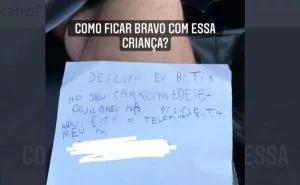 carro?
COMO FICAR BRAVO COM ESSA
CRIANÇA?
DESCUPA EU BATI
NO SEU CARRO ME DESE-
QUILIBREI NA BISICLETA
AQUI ESTA O TELEFONE D
MEU PAI
COM
ESSA